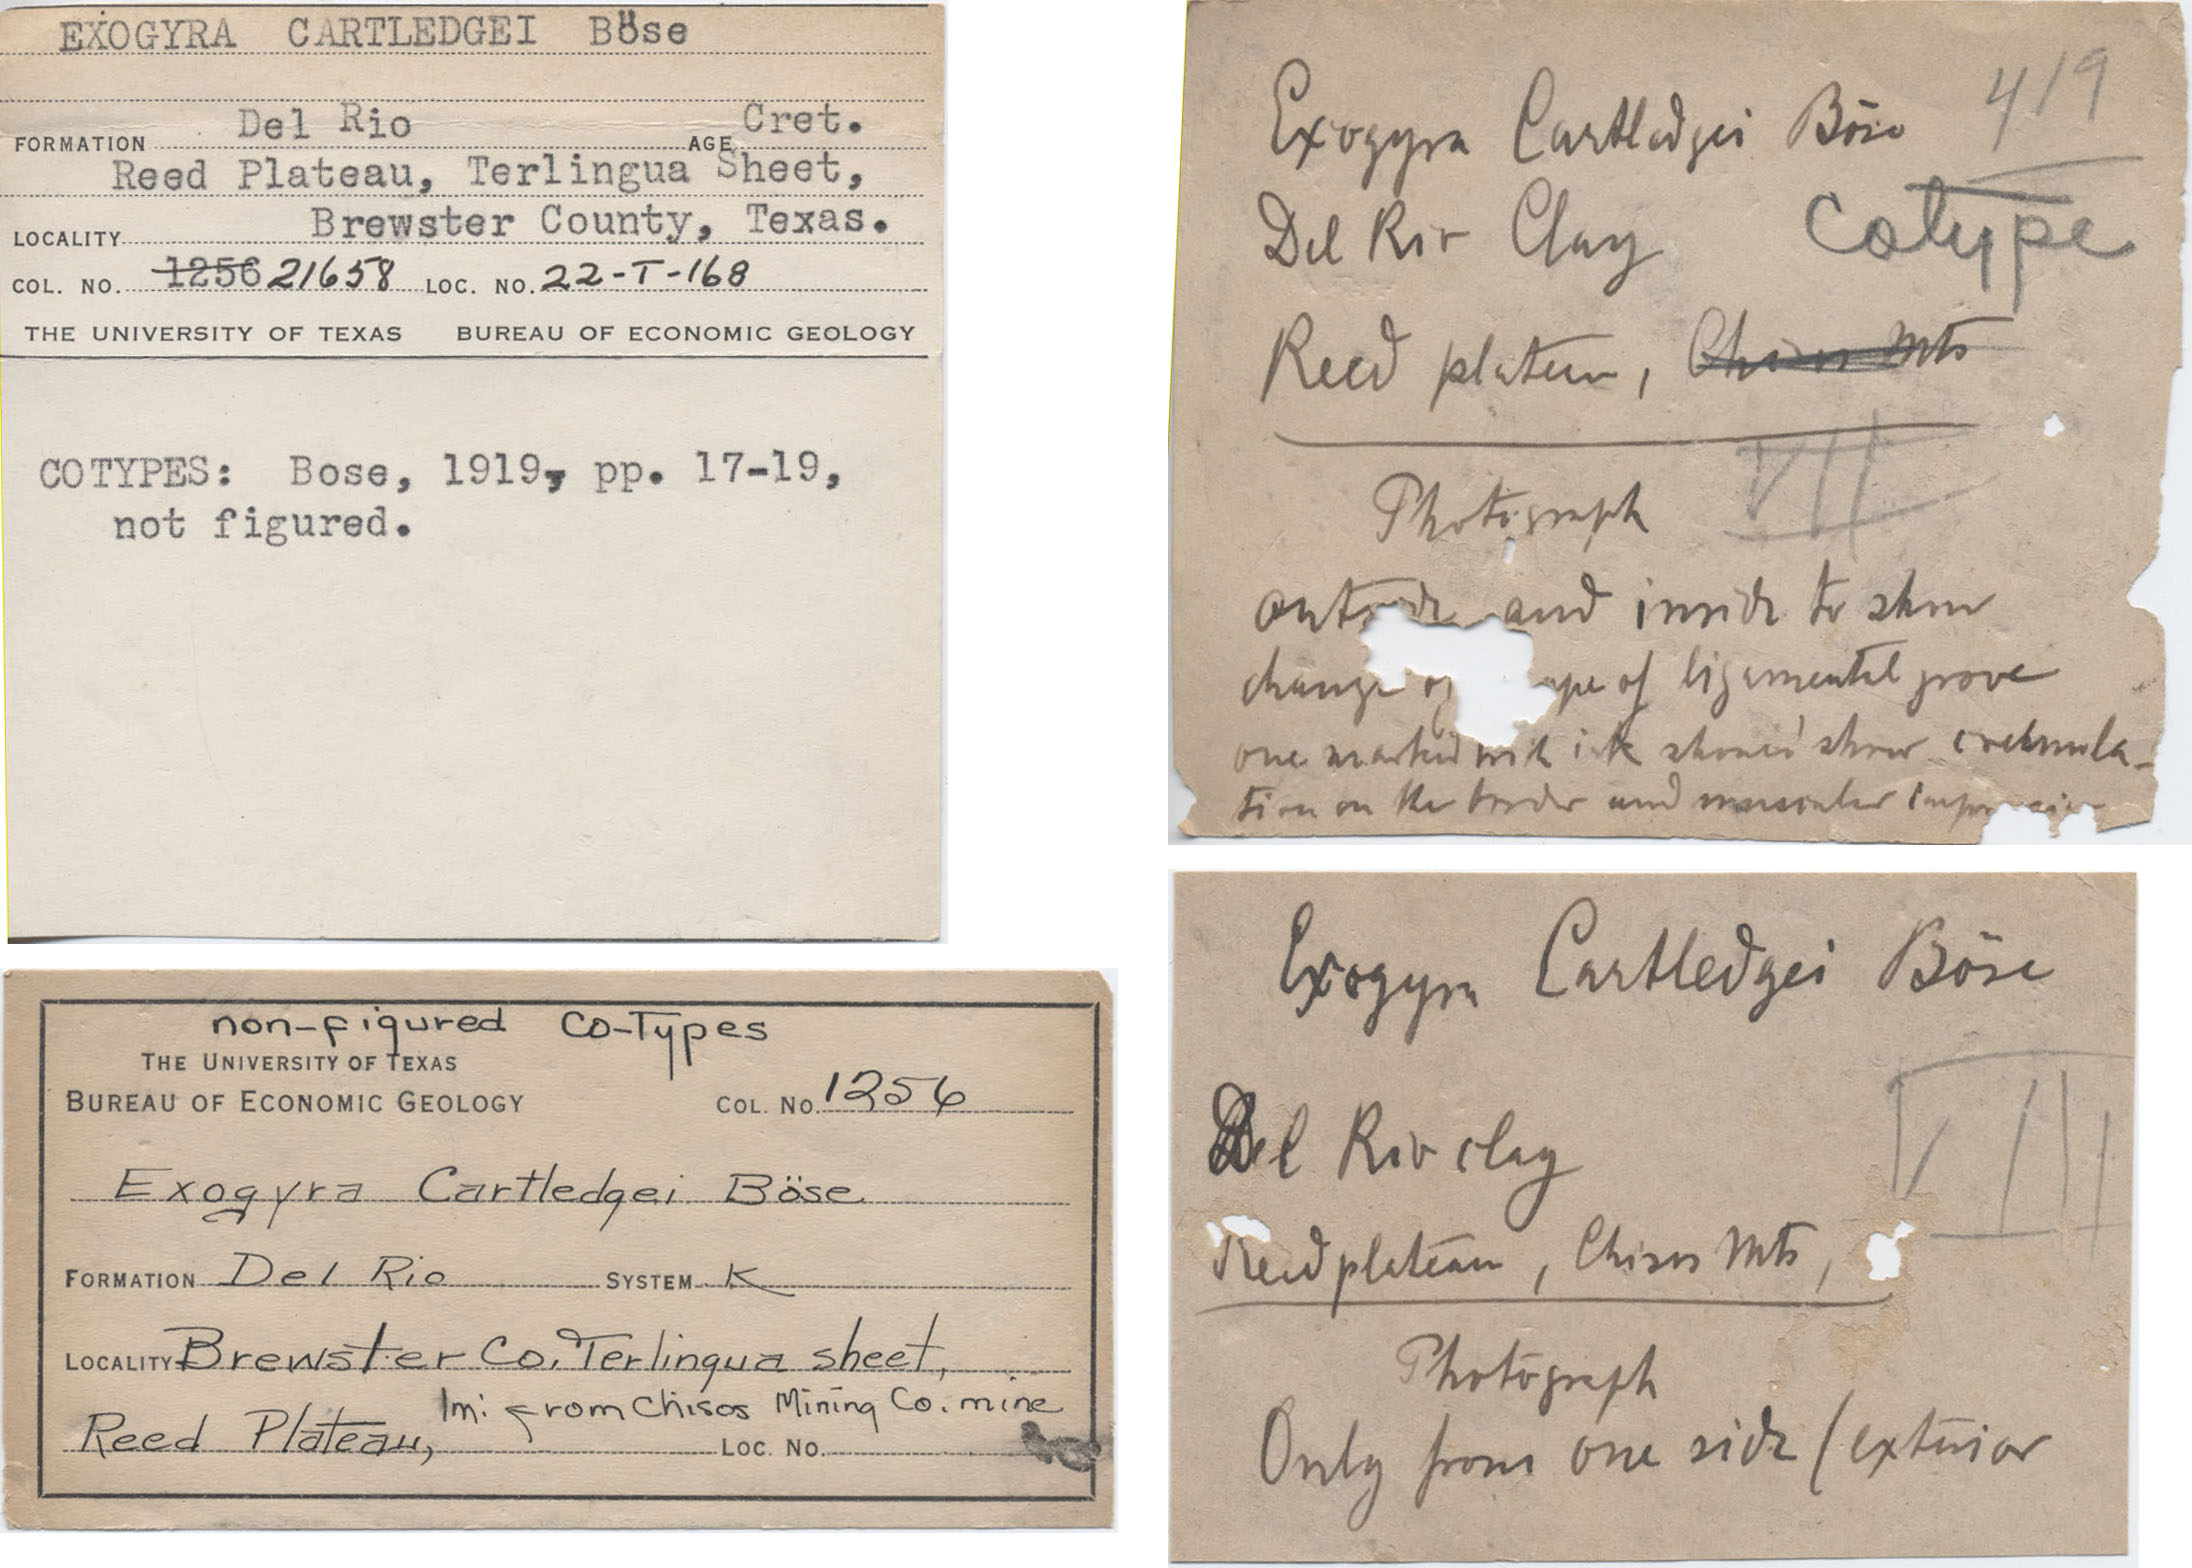 EXOGYRA CARTLEDGEI Böse
FORMATION Del Rio AGE Cret.
Reed Plateau, Terlingua Sheet,
LOCALITY Brewster County, Texas.
COL. NO. 1256 21658 LOC. NO. 22-T-168
THE UNIVERSITY OF TEXAS BUREAU OF ECONOMIC GEOLOGY
COTYPES: Bose, 1919, pp. 17-19,
not figured.
non-figured Co-Types
THE UNIVERSITY OF TEXAS
BUREAU OF ECONOMIC GEOLOGY COL. NO. 1256
Exogyra Cartledgei Böse
FORMATION Del Rio SYSTEM K
LOCALITY Brewster Co. Terlingua sheet,
1m: from Chisos Mining Co. mine
Reed Plateau, LOC. NO.
Exogyra Cartledgei Böse 419
Del Rio Clay cotype
Reed plateau, Chisos Mts
VII
Photograph
outside and inside to show
change of ype of ligamental grove
one marked with ink should show crenula-
tion on the border and muscular
Exogyra Cartledgei Böse
VII
Del Rio clay
Reed plateau, Chisos Mts,
Photograph
Only from one side (exterior